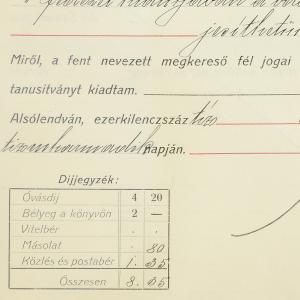 Miről, a fent nevezett megkereső fél jogai
tanusitványt kiadtam.
Alsólendván, ezerkilenczszáz tíz
tizenharmadik napján.
Díjjegyzék:
Óvásdíj 4 20
Bélyeg a könyvön 2 —
Vitelbér . .
Másolat . 80
Közlés és postabér 1. 35
Összesen 8. 35